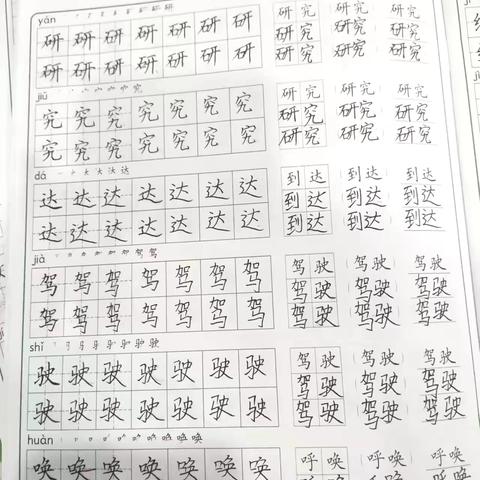 yán
研 研 研 研 研 研 研 研究 研究 研究
研究 研究 研究
研 研 研 研 研 研 研 研究 研究 研究
jiū
究 究 究 究 究 究 究 研究 研究 研究
研究 研究 研究
究 究 究 究 究 究 究 研究 研究 研究
dá
达 达 达 达 达 达 达 到达 到达 到达
到达 到达 到达
达 达 达 达 达 达 达 到达 到达 到达
jià
驾 驾 驾 驾 驾 驾 驾 驾驶 驾驶 驾驶
驾驶 驾驶 驾驶
驾 驾 驾 驾 驾 驾 驾 驾驶 驾驶 驾驶
shǐ
驶 驶 驶 驶 驶 驶 驶 驾驶 驾驶 驾驶
驾驶 驾驶 驾驶
驶 驶 驶 驶 驶 驶 驶 驾驶 驾驶 驾驶
huàn
唤 唤 唤 唤 唤 唤 唤 呼唤 呼唤 呼唤
呼唤 呼唤 呼唤